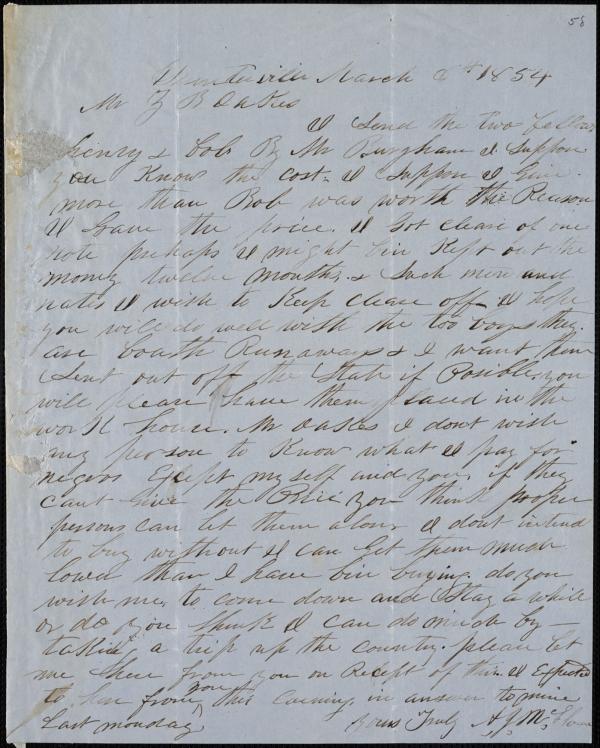 58
March 8th 1854
Mr Z B Oakes
I Send the two fellows
henry & bob By Mr Burgham I Suppose
you Know the cost. I Suppose I Give
more than Bob was worth the Reason
I Gave the price. I Got cleare of one
note perhaps I might bin Kept out the
money twelve months. & Such men and
nates I wish to Keep cleare off I hope
you will do well with the too boys they
are boath Runaways & I want them
Sent out off the State if Posible you
will please have them placed in the
work house. Mr Oakes I dont wish
my person to Know what I pay for
negros Exept my self and you, if they
cant Give the Price you think proper
persons can let them alone I dont intend
to buy without I can Get them much
lower than I have bin buying. do you
wish me to come down and Stay a while
or do you think I can do much by
taking a trip up the country. please let
me hear from you on Recept of this. I Expected
to hear from you this Evening in answer to mine
Last monday Yours Truly A J McElveen